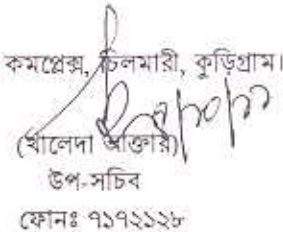 কমপ্লেক্স, চিলমারী, কুড়িগ্রাম।
(খালেদা আক্তার)
উপ-সচিব
ফোনঃ ৭১৭২১২৮